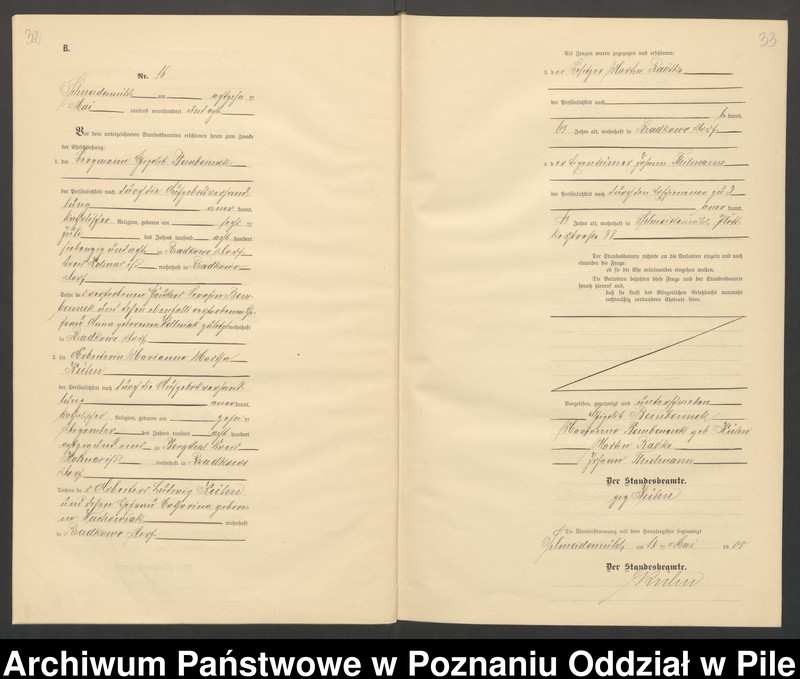 32
B.
Nr. 16
Schneidemühl am achtzehn
Mai tausend neunhundert und acht
Vor dem unterzeichneten Standesbeamten erschienen heute zum Zwecke
der Eheschließung:
1. der Bergmann Bembennek
der Persönlichkeit nach durch die Aufgebotsverhand
lung anerkannt,
katholischer Religion, geboren am
Juli des Jahres tausend acht hundert
siebenzig und acht zu Radkowo Dorf
Kreis Kolmar i/P, wohnhaft in Radkowo
Dorf
Sohn des verstorbenen
und dessen ebenfalls verstorbenen Ehe
frau Anna geborenen zuletzt wohnhaft
in Radkowo Dorf
2. die Arbeiterin Marianna Martha
Kühn
der Persönlichkeit nach durch die Aufgebotsverhand
lung anerkannt,
katholischer Religion, geboren am zehn
Dezember des Jahres tausend acht hundert
achtzig und zu Bergthal Kreis
Kolmar i/P wohnhaft in Radkowo
Dorf
Tochter des Arbeiters Ludwig Kühn
und dessen Ehefrau Catharina gebore
ne wohnhaft
in Radkowo Dorf
33
Als Zeugen waren zugezogen und erschienen:
3. der Besitzer Martin Radtke
der Persönlichkeit nach
bekannt,
63 Jahre alt, wohnhaft in Radkowo Dorf
4. der Eigentümer Johann Thielmann
der Persönlichkeit nach durch den Erschienenen zu 2
anerkannt,
Jahre alt, wohnhaft in Schneidemühl,
38
Der Standesbeamte richtete an die Verlobten einzeln und nach
einander die Frage:
ob sie die Ehe miteinander eingehen wollen.
Die Verlobten bejahten diese Frage und der Standesbeamte
sprach hierauf aus,
daß sie kraft des Bürgerlichen Gesetzbuchs nunmehr
rechtmäßig verbundene Eheleute seien.
Vorgelesen, genehmigt und unterschrieben
Bembennek
Marianna Bembennek geb. Kühn
Martin Radtke
Johann Thielmann
Der Standesbeamte.
gez. Kühn
Die Übereinstimmung mit dem Hauptregister beglaubigt
Schneidemühl, am 18 ten Mai 1908
Der Standesbeamte.
Kühn
Archiwum Państwowe w Poznaniu Oddział w Pile